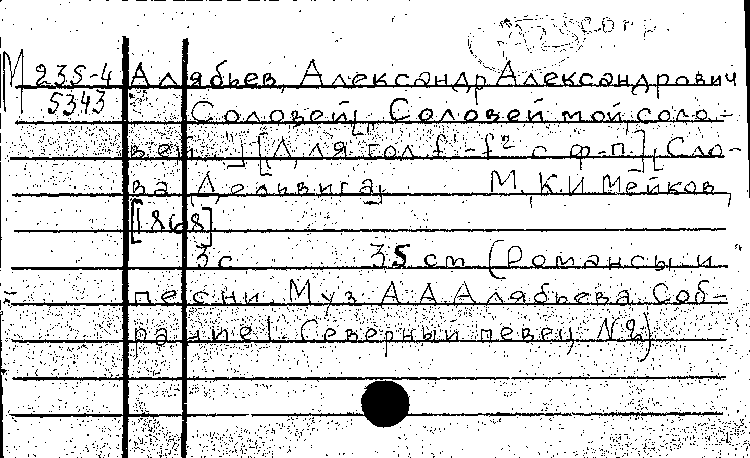 согр.
М 235-4 Алябьев, Александр Александрович
5343 Соловей[, "Соловей мой, соло-
вей..."] [Для гол. f¹-f² с ф-п.], Сло-
ва Дельвига, М., К.И. Мейков,
[1868]
3 с. 35 cm (Романсы и
песни. Муз. А.А. Алябьева. Соб-
рание I. Северный певец, №2)